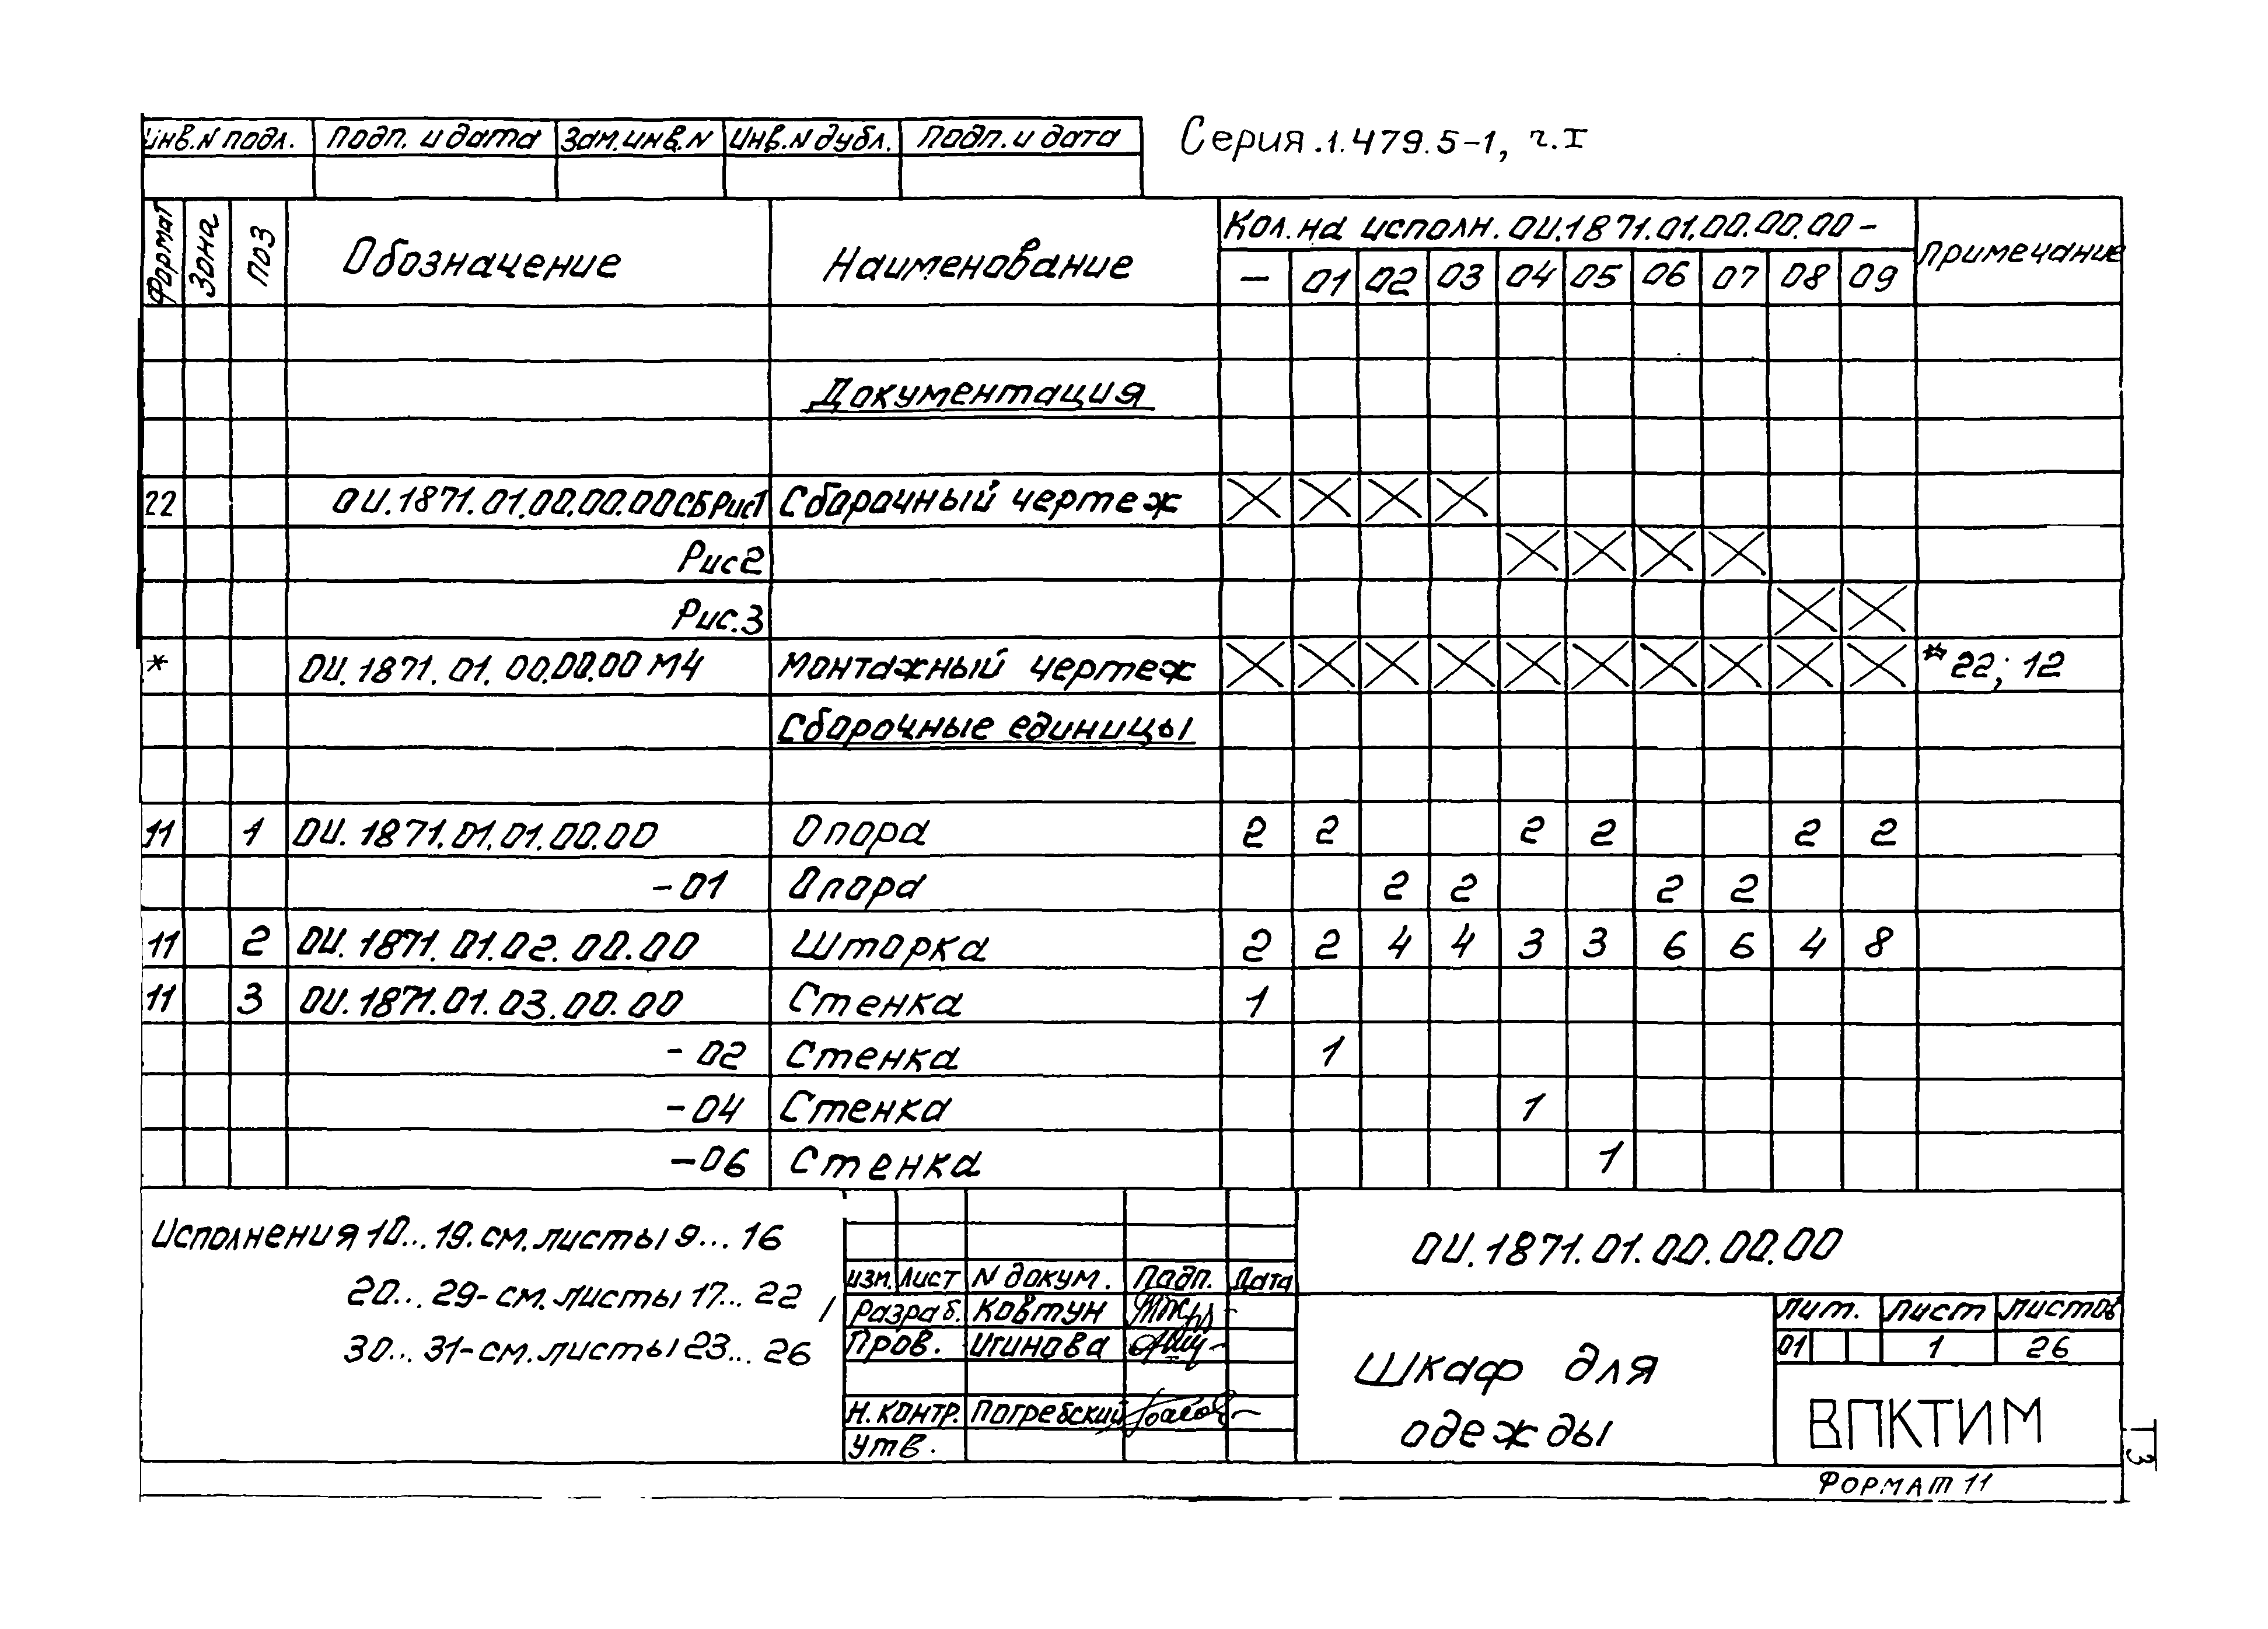 Инв.N подл. Подп. и дата Зам.инв.N Инв.N дубл. Подп. и дата Серия.1.479.5-1, ч.I
Формат Зона Поз Обозначение Наименование Кол. на исполн. ОИ.1871.01.00.00.00- Примечание
– 01 02 03 04 05 06 07 08 09
Документация
22 ОИ.1871.01.00.00.00СБ Рис1 Сборочный чертеж X X X X
Рис2 X X X X
Рис.3 X X
* ОИ.1871.01.00.00.00 МЧ Монтажный чертеж X X X X X X X X X X * 22; 12
Сборочные единицы
11 1 ОИ.1871.01.01.00.00 Опора 2 2 2 2 2 2
-01 Опора 2 2 2 2
11 2 ОИ.1871.01.02.00.00 Шторка 2 2 4 4 3 3 6 6 4 8
11 3 ОИ.1871.01.03.00.00 Стенка 1
-02 Стенка 1
-04 Стенка 1
-06 Стенка 1
Исполнения 10... 19.см.листы 9... 16
20... 29-см.листы 17... 22
30... 31-см.листы 23... 26
ОИ.1871.01.00.00.00
Изм. Лист N докум. Подп. Дата
Разраб. Ковтун
Пров. Игинова
Н.контр. Погребский
Утв.
Шкаф для
одежды
Лит. Лист Листов
01 1 26
ВПКТИМ
Формат 11
Т3